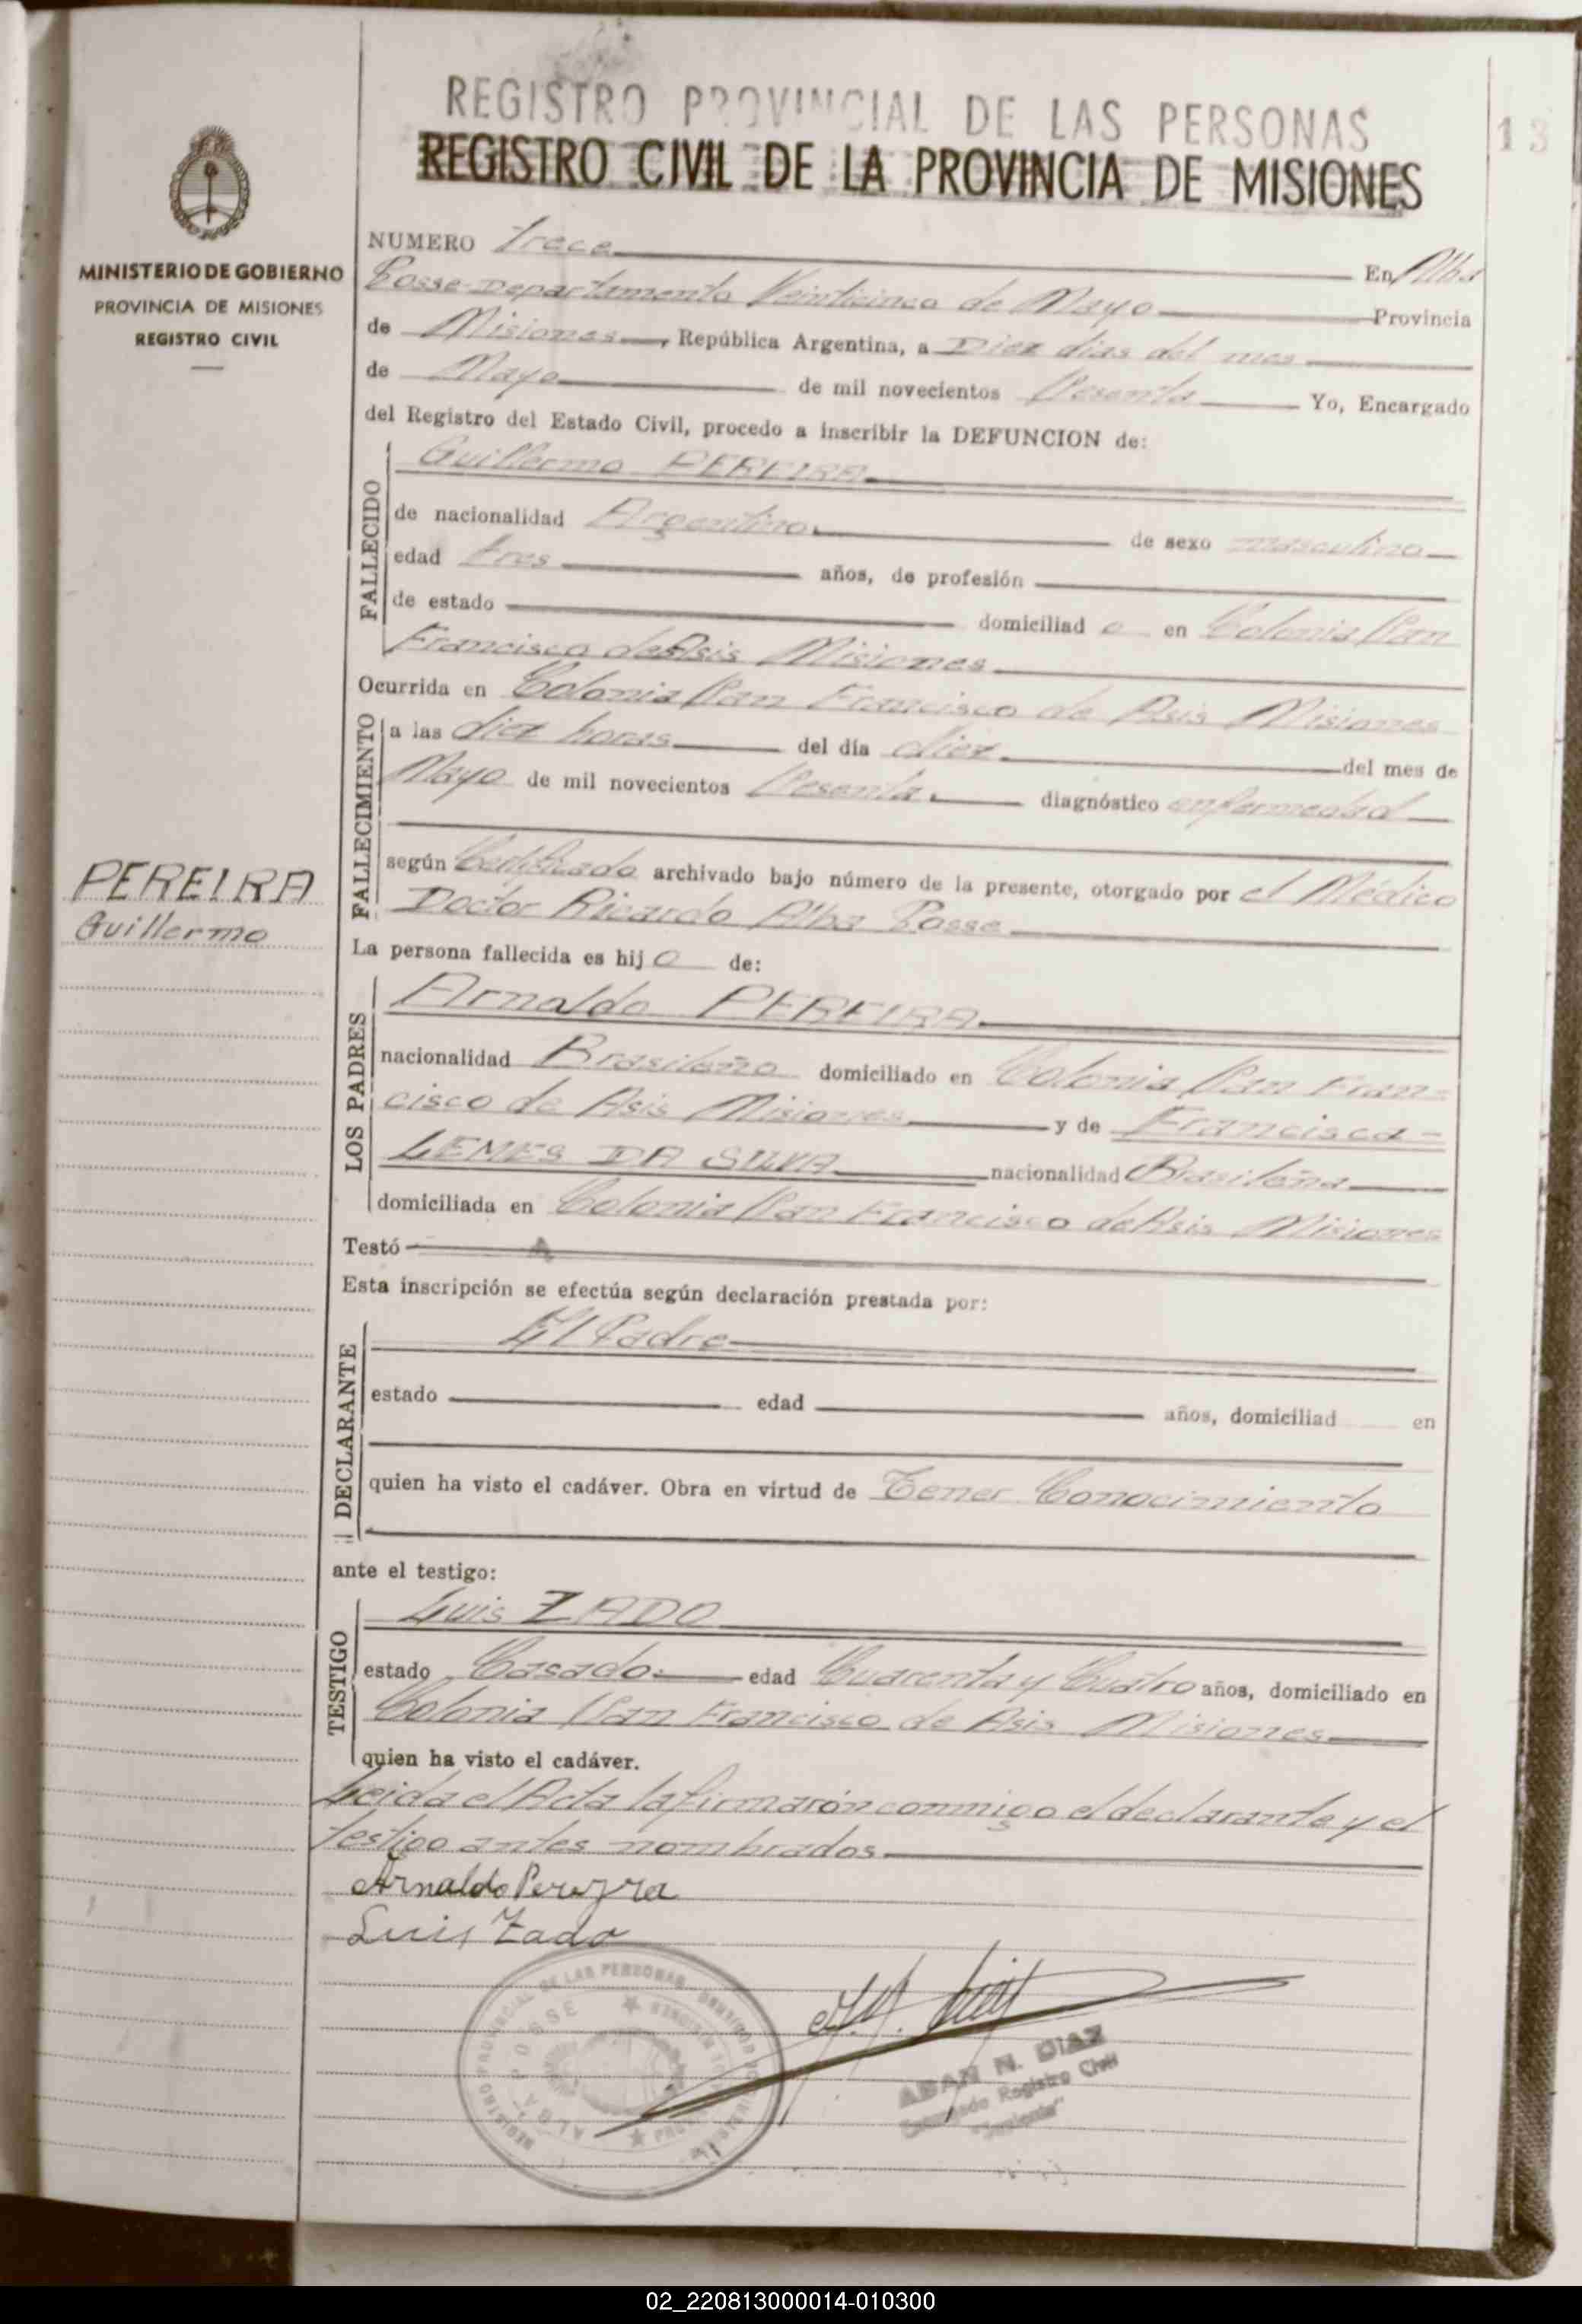 REGISTRO PROVINCIAL DE LAS PERSONAS
REGISTRO CIVIL DE LA PROVINCIA DE MISIONES
13
MINISTERIO DE GOBIERNO
PROVINCIA DE MISIONES
REGISTRO CIVIL
PEREIRA
Guillermo
NUMERO Trece En Alba
Posse-Departamento Veinticinco de Mayo Provincia
de Misiones, República Argentina, a Diez dias del mes
de Mayo de mil novecientos Sesenta Yo, Encargado
del Registro del Estado Civil, procedo a inscribir la DEFUNCION de:
FALLECIDO
Guillermo PEREIRA
de nacionalidad Argentino de sexo masculino
edad tres años, de profesión
de estado domiciliad o en Colonia San
Francisco de Asis Misiones
Ocurrida en Colonia San Francisco de Asis Misiones
FALLECIMIENTO
a las diez horas del día diez del mes de
Mayo de mil novecientos Sesenta. diagnóstico enfermedad
según Certificado archivado bajo número de la presente, otorgado por el Médico
Doctor Ricardo Alba Posse
La persona fallecida es hij o de:
LOS PADRES
Arnaldo PEREIRA
nacionalidad Brasileño domiciliado en Colonia San Fran=
cisco de Asis Misiones y de Francisca-
LEMES DA SILVA nacionalidad Brasileña
domiciliada en Colonia San Francisco de Asis Misiones
Testó
Esta inscripción se efectúa según declaración prestada por:
DECLARANTE
El Padre
estado edad años, domiciliad en
quien ha visto el cadáver. Obra en virtud de Tener Conocimiento
ante el testigo:
TESTIGO
Luis ZADO
estado Casado. edad Cuarenta y Cuatro años, domiciliado en
Colonia San Francisco de Asis Misiones
quien ha visto el cadáver.
Leida el Acta la firmarón conmigo el declarante y el
testigo antes nombrados
Arnaldo Pereyra
Luis Zado
REGISTRO PROVINCIAL DE LAS PERSONAS
ALBA POSSE
ADAN N. DIAZ
Encargado Registro Civil
"Suplente"
02_220813000014-010300